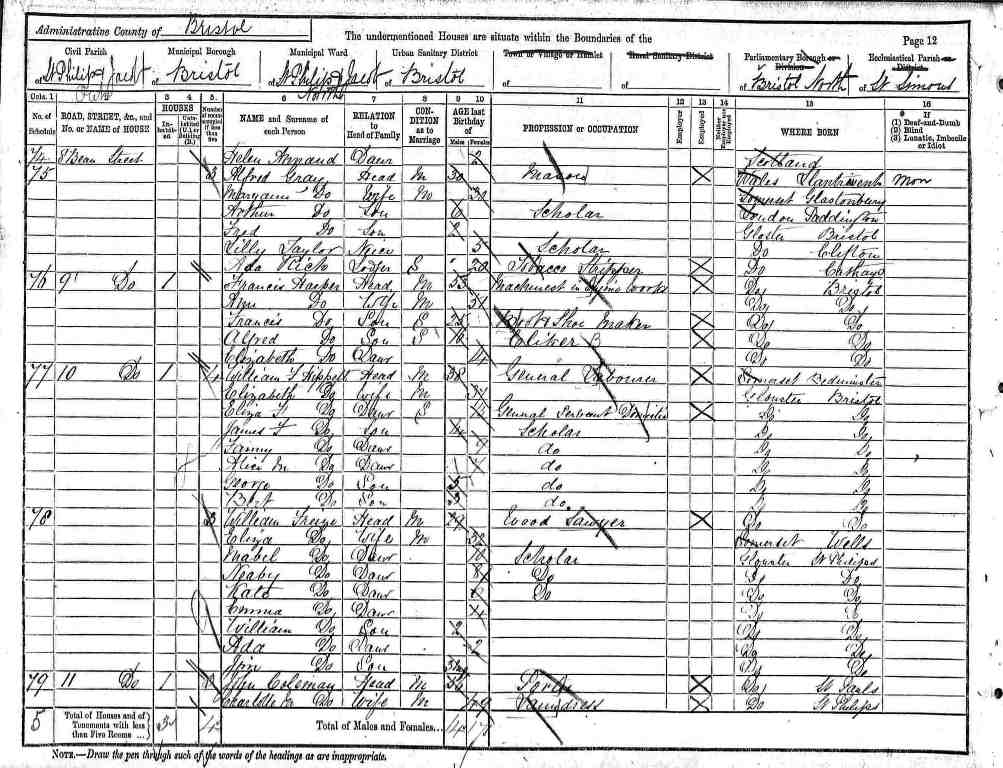 Administrative County of Bristol
The undermentioned Houses are situate within the Boundaries of the
Page 12
Civil Parish
Municipal Borough
Municipal Ward
Urban Sanitary District
Town or Village or Hamlet
Rural Sanitary District
Parliamentary Borough or Division
Ecclesiastical Parish or District
of St Philip & Jacob Out
of Bristol
of St Philip & Jacob North
of Bristol
of
of
of Bristol North
of St Simons
Cols. 1 2 3 4 5 6 7 8 9 10 11 12 13 14 15 16
No. of Schedule
ROAD, STREET, &c., and No. or NAME of HOUSE
HOUSES
NAME and Surname of each Person
RELATION to Head of Family
CONDITION as to Marriage
AGE last Birthday of
Males Females
PROFESSION or OCCUPATION
Employer
Employed
Neither Employer nor Employed
WHERE BORN
If
(1) Deaf-and-Dumb
(2) Blind
(3) Lunatic, Imbecile or Idiot
74 8 Bean Street Helen Daur 2 Scotland
75 3 Alfred Gray Head M 30 Mason X Wales Mon
Maryann Do Wife M 30 Somerset Glastonbury
Arthur Do Son 6 Scholar London Paddington
Fred Do Son 2 Gloster Bristol
Lilly Taylor Niece 5 Scholar Do Clifton
Ada Rich Lodger S 20 Tobacco Stripper X Do Cathays
76 9 Do 1 Francis Harper Head M 53 Machinist in Works X Do Bristol
Ann Do Wife M 51 Do Do
Francis Do Son S 25 Boot & Shoe Maker X Do Do
Alfred Do Son S 16 Clicker B X Do Do
Elizabeth Do Daur 14 Do Do
77 10 Do 1 4 William T Head M 38 General Labourer X Somerset Bedminster
Elizabeth Do Wife M 37 Gloucster Bristol
Eliza T Do Daur S General Servant Domestic X Do Do
James T Do Son Scholar Do Do
Fanny Do Daur do Do Do
Alice M Do Daur do Do Do
George Do Son 5 do Do Do
Bert Do Son 3 do Do
78 3 William Head M 29 Wood Sawyer X Do Do
Eliza Do Wife M 32 Somerset Wells
Mabel Do Daur 10 Scholar Gloucster St Philips
Do Daur 8 Do Do Do
Kate Do Daur 6 Do Do Do
Emma Do Daur 4 Do
William Do Son 2 Do Do
Ada Do Daur 2 Do Do
Do Son Do Do
79 11 Do 1 John Coleman Head M X Do St Pauls
Charlotte Do Wife M 49 X Do St Philips
5 Total of Houses and of Tenements with less than Five Rooms ... 3 Total of Males and Females... 14 17
NOTE.—Draw the pen through such of the words of the headings as are inappropriate.